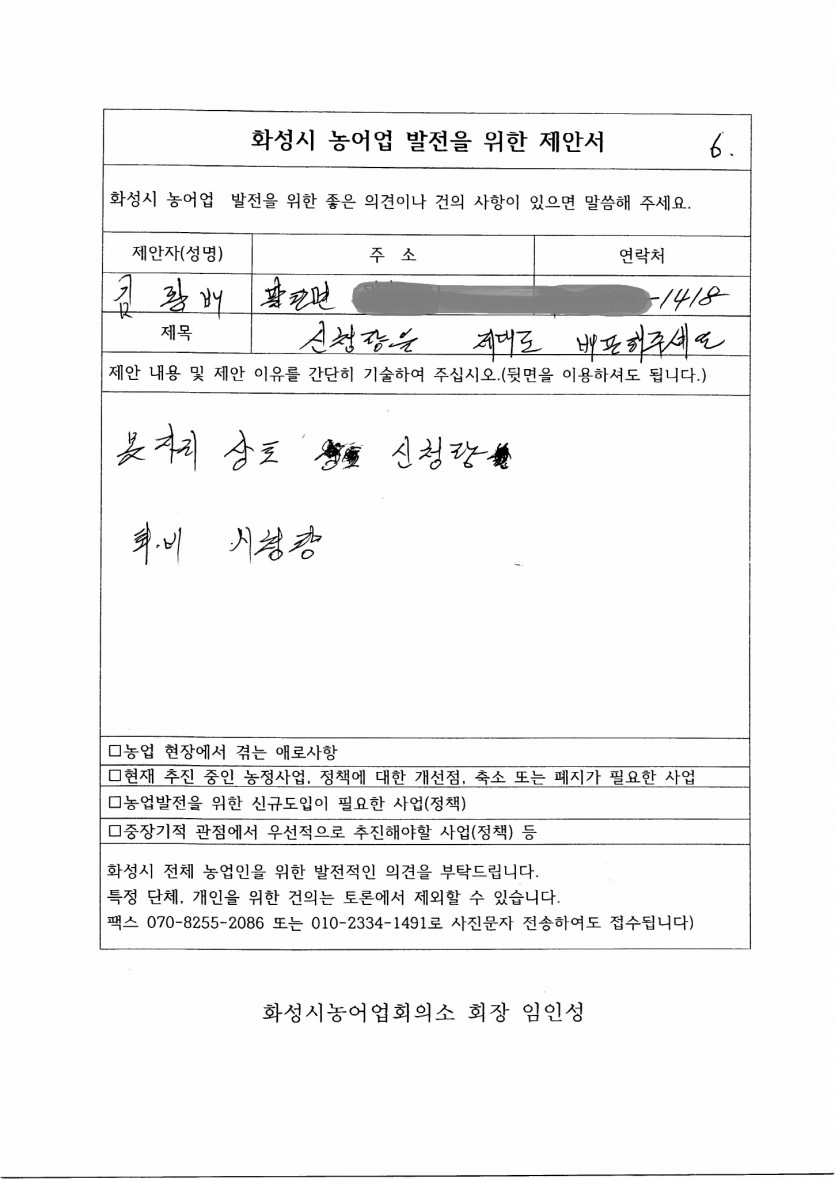 화성시 농어업 발전을 위한 제안서 6.
화성시 농어업 발전을 위한 좋은 의견이나 건의 사항이 있으면 말씀해 주세요.
제안자(성명) 주 소 연락처
김 배 -1418
제목 신청량을 제대로 배포해주세요
제안 내용 및 제안 이유를 간단히 기술하여 주십시오.(뒷면을 이용하셔도 됩니다.)
못자리 상토 신청량
퇴.비 시청량
□농업 현장에서 겪는 애로사항
□현재 추진 중인 농정사업, 정책에 대한 개선점, 축소 또는 폐지가 필요한 사업
□농업발전을 위한 신규도입이 필요한 사업(정책)
□중장기적 관점에서 우선적으로 추진해야할 사업(정책) 등
화성시 전체 농업인을 위한 발전적인 의견을 부탁드립니다.
특정 단체, 개인을 위한 건의는 토론에서 제외할 수 있습니다.
팩스 070-8255-2086 또는 010-2334-1491로 사진문자 전송하여도 접수됩니다)
화성시농어업회의소 회장 임인성